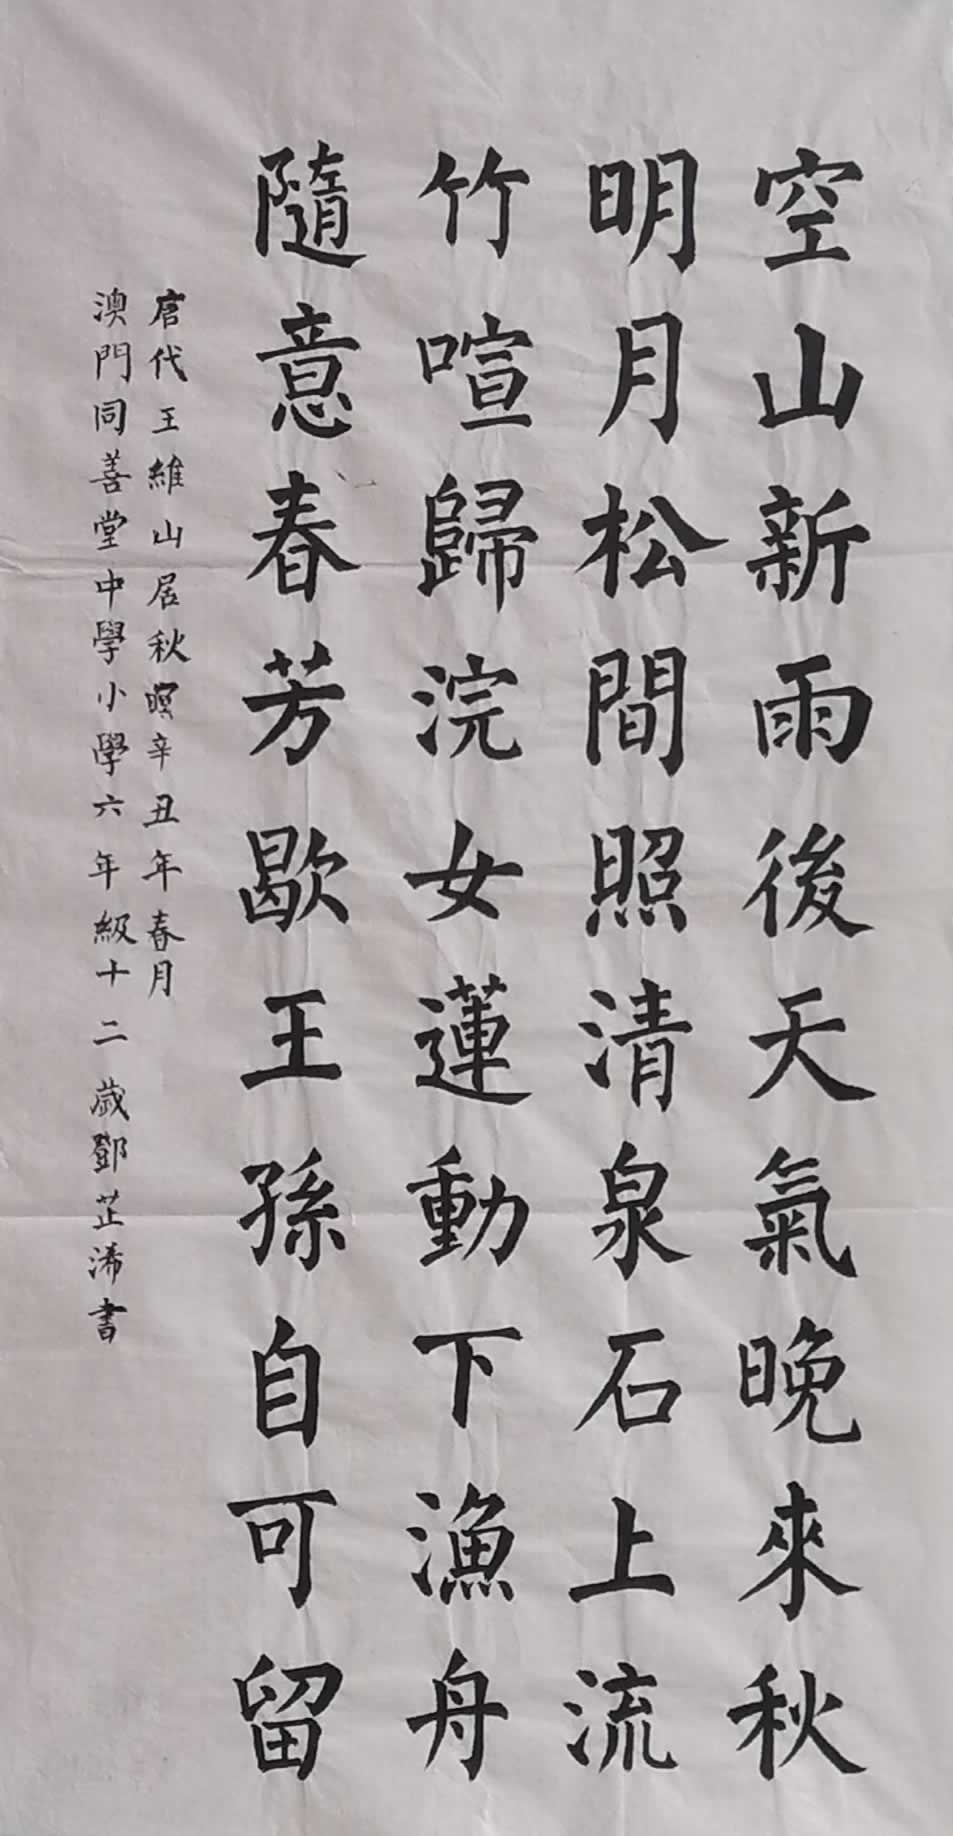 空山新雨後天氣晚來秋
明月松間照清泉石上流
竹喧歸浣女蓮動下漁舟
隨意春芳歇王孫自可留
唐代王維山居秋暝辛丑年春月
澳門同善堂中學小學六年級十二歲鄧芷浠書